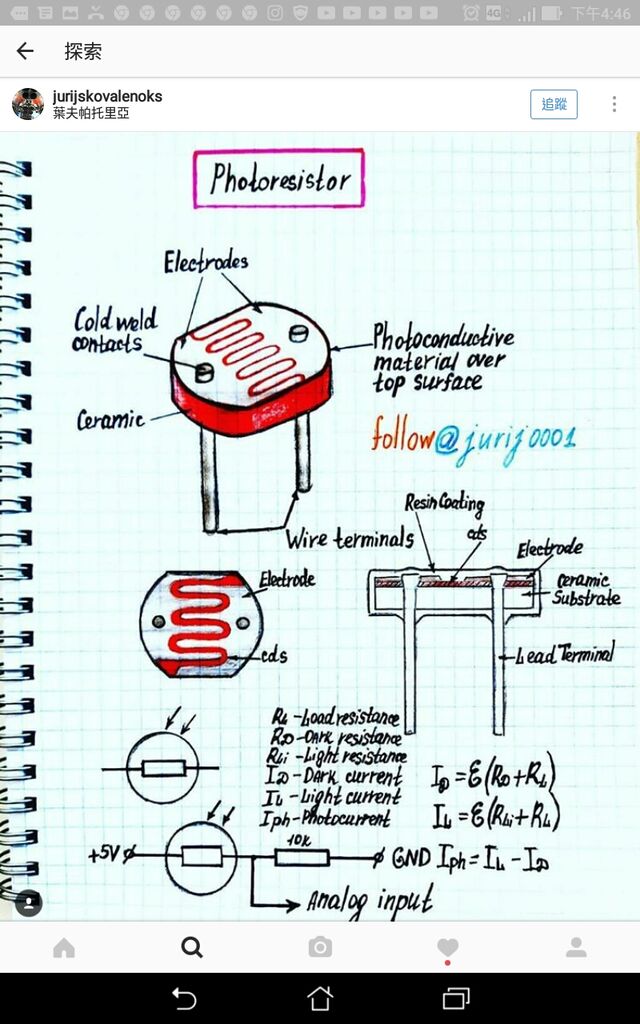 4G
下午4:46
探索
jurijskovalenoks
葉夫帕托里亞
追蹤
Photoresistor
Electrodes
Cold weld
contacts
Photoconductive
material over
top surface
Ceramic
follow@jurij0001
Wire terminals
Resin Coating
cds
Electrode
Ceramic
Substrate
Lead Terminal
Electrode
cds
RL - Load resistance
RD - Dark resistance
RLi - Light resistance
ID - Dark current
IL - Light current
Iph - Photocurrent
ID = ε(RD + RL)
IL = ε(RLi + RL)
Iph = IL - ID
+5V
10K
GND
Analog input